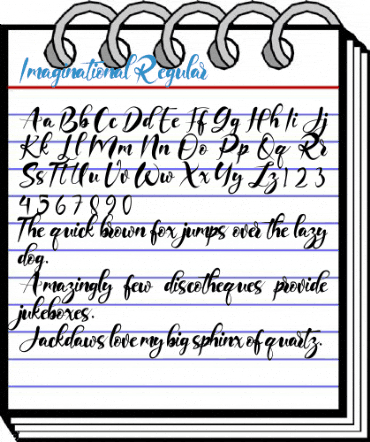 Imaginational Regular
Aa Bb Cc Dd Ee Ff Gg Hh Ii Jj
Kk Ll Mm Nn Oo Pp Qq Rr
Ss Tt Uu Vv Ww Xx Yy Zz 1 2 3
4 5 6 7 8 9 0
The quick brown fox jumps over the lazy
dog.
Amazingly few discotheques provide
jukeboxes.
Jackdaws love my big sphinx of quartz.